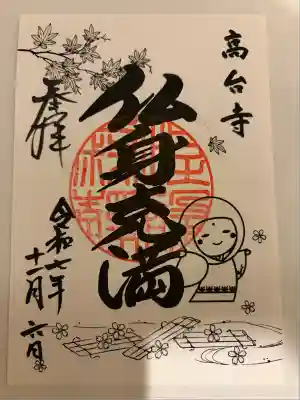 高台寺
仏身充満
奉拝
令和七年
十一月六日